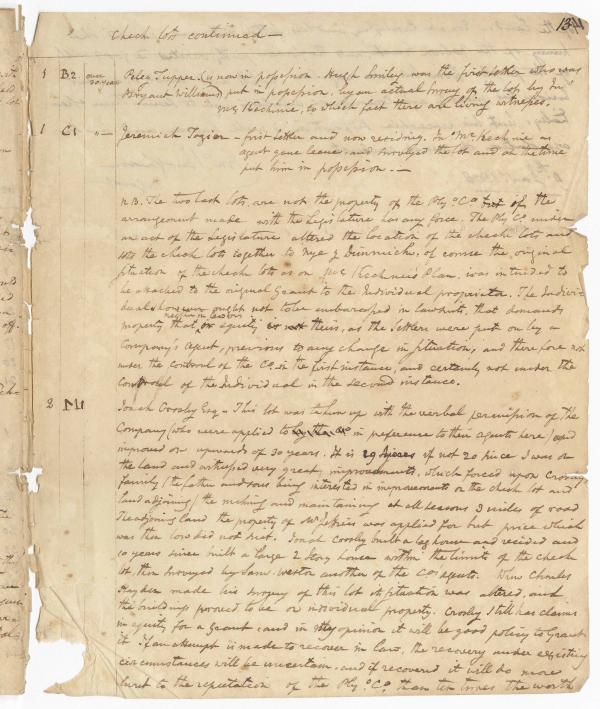 134
Check lots continued —
1 B2 over 20 years Peleg Tupper. (is now in possession. Hugh Smiley was the first settler who was
Bryant Williams put in possession, by an actual survey of the lot by Dn
McKechnie, to which fact there are living witnesses.
1 C1 " — Jeremiah Tozier — first settler and now residing. Dn McKechnie as
agent gave leave, and surveyed the lot and on the time
put him in possession. —
N.B. The two last lots, are not the property of the Ply.o C.o if the
arrangement made with the Legislature has any force. The Ply C.o under
an act of the Legislature altered the location of the check lots and
the check lots together to Nye & Dimmick. of course the original
situation of the check lots as on McKechnies Plan. was intended to
be attached to the original Grant to the Individual proprietor. The Individ-
uals however ought not to be embarassed in lawsuits, that demands
property that, or equity is not theirs, as the settlers were put on by a
Company's agent, previous to any change in situation, and therefore not
under the controul of the C.o in the first instance, and certainly not under the
controul of the Individual in the second instance.
2 Jonah Crosby Esq — This lot was taken up with the verbal permission of the
Company (who were applied to in preference to their agents here) and
improved on upwards of 30 years. It is 19 years if not 20 since I was on
the land and witnessed very great improvements, which forced upon Crosby
family (the father and sons being interested in improvements on the check lot and
land adjoining) the making and maintaining at all seasons 3 miles of road
The adjoining land the property of Mr was applied for but price which
was then low did not suit. Jonah Crosby built a log house and resided and
10 years since built a large 2 story house within the limits of the check
lot, then surveyed by Saml Weston another of the C.os agents. When Charles
Hayden made his survey of this lot its situation was altered, and
the buildings proved to be on individual property. Crosby still has claims
in equity for a grant; and in my opinion it will be good policy to grant
it. If an attempt is made to recover in law, the recovery under existing
circumstances will be uncertain, and if recovered it will do more
hurt to the reputation of the Ply.o C.o than ten times the worth